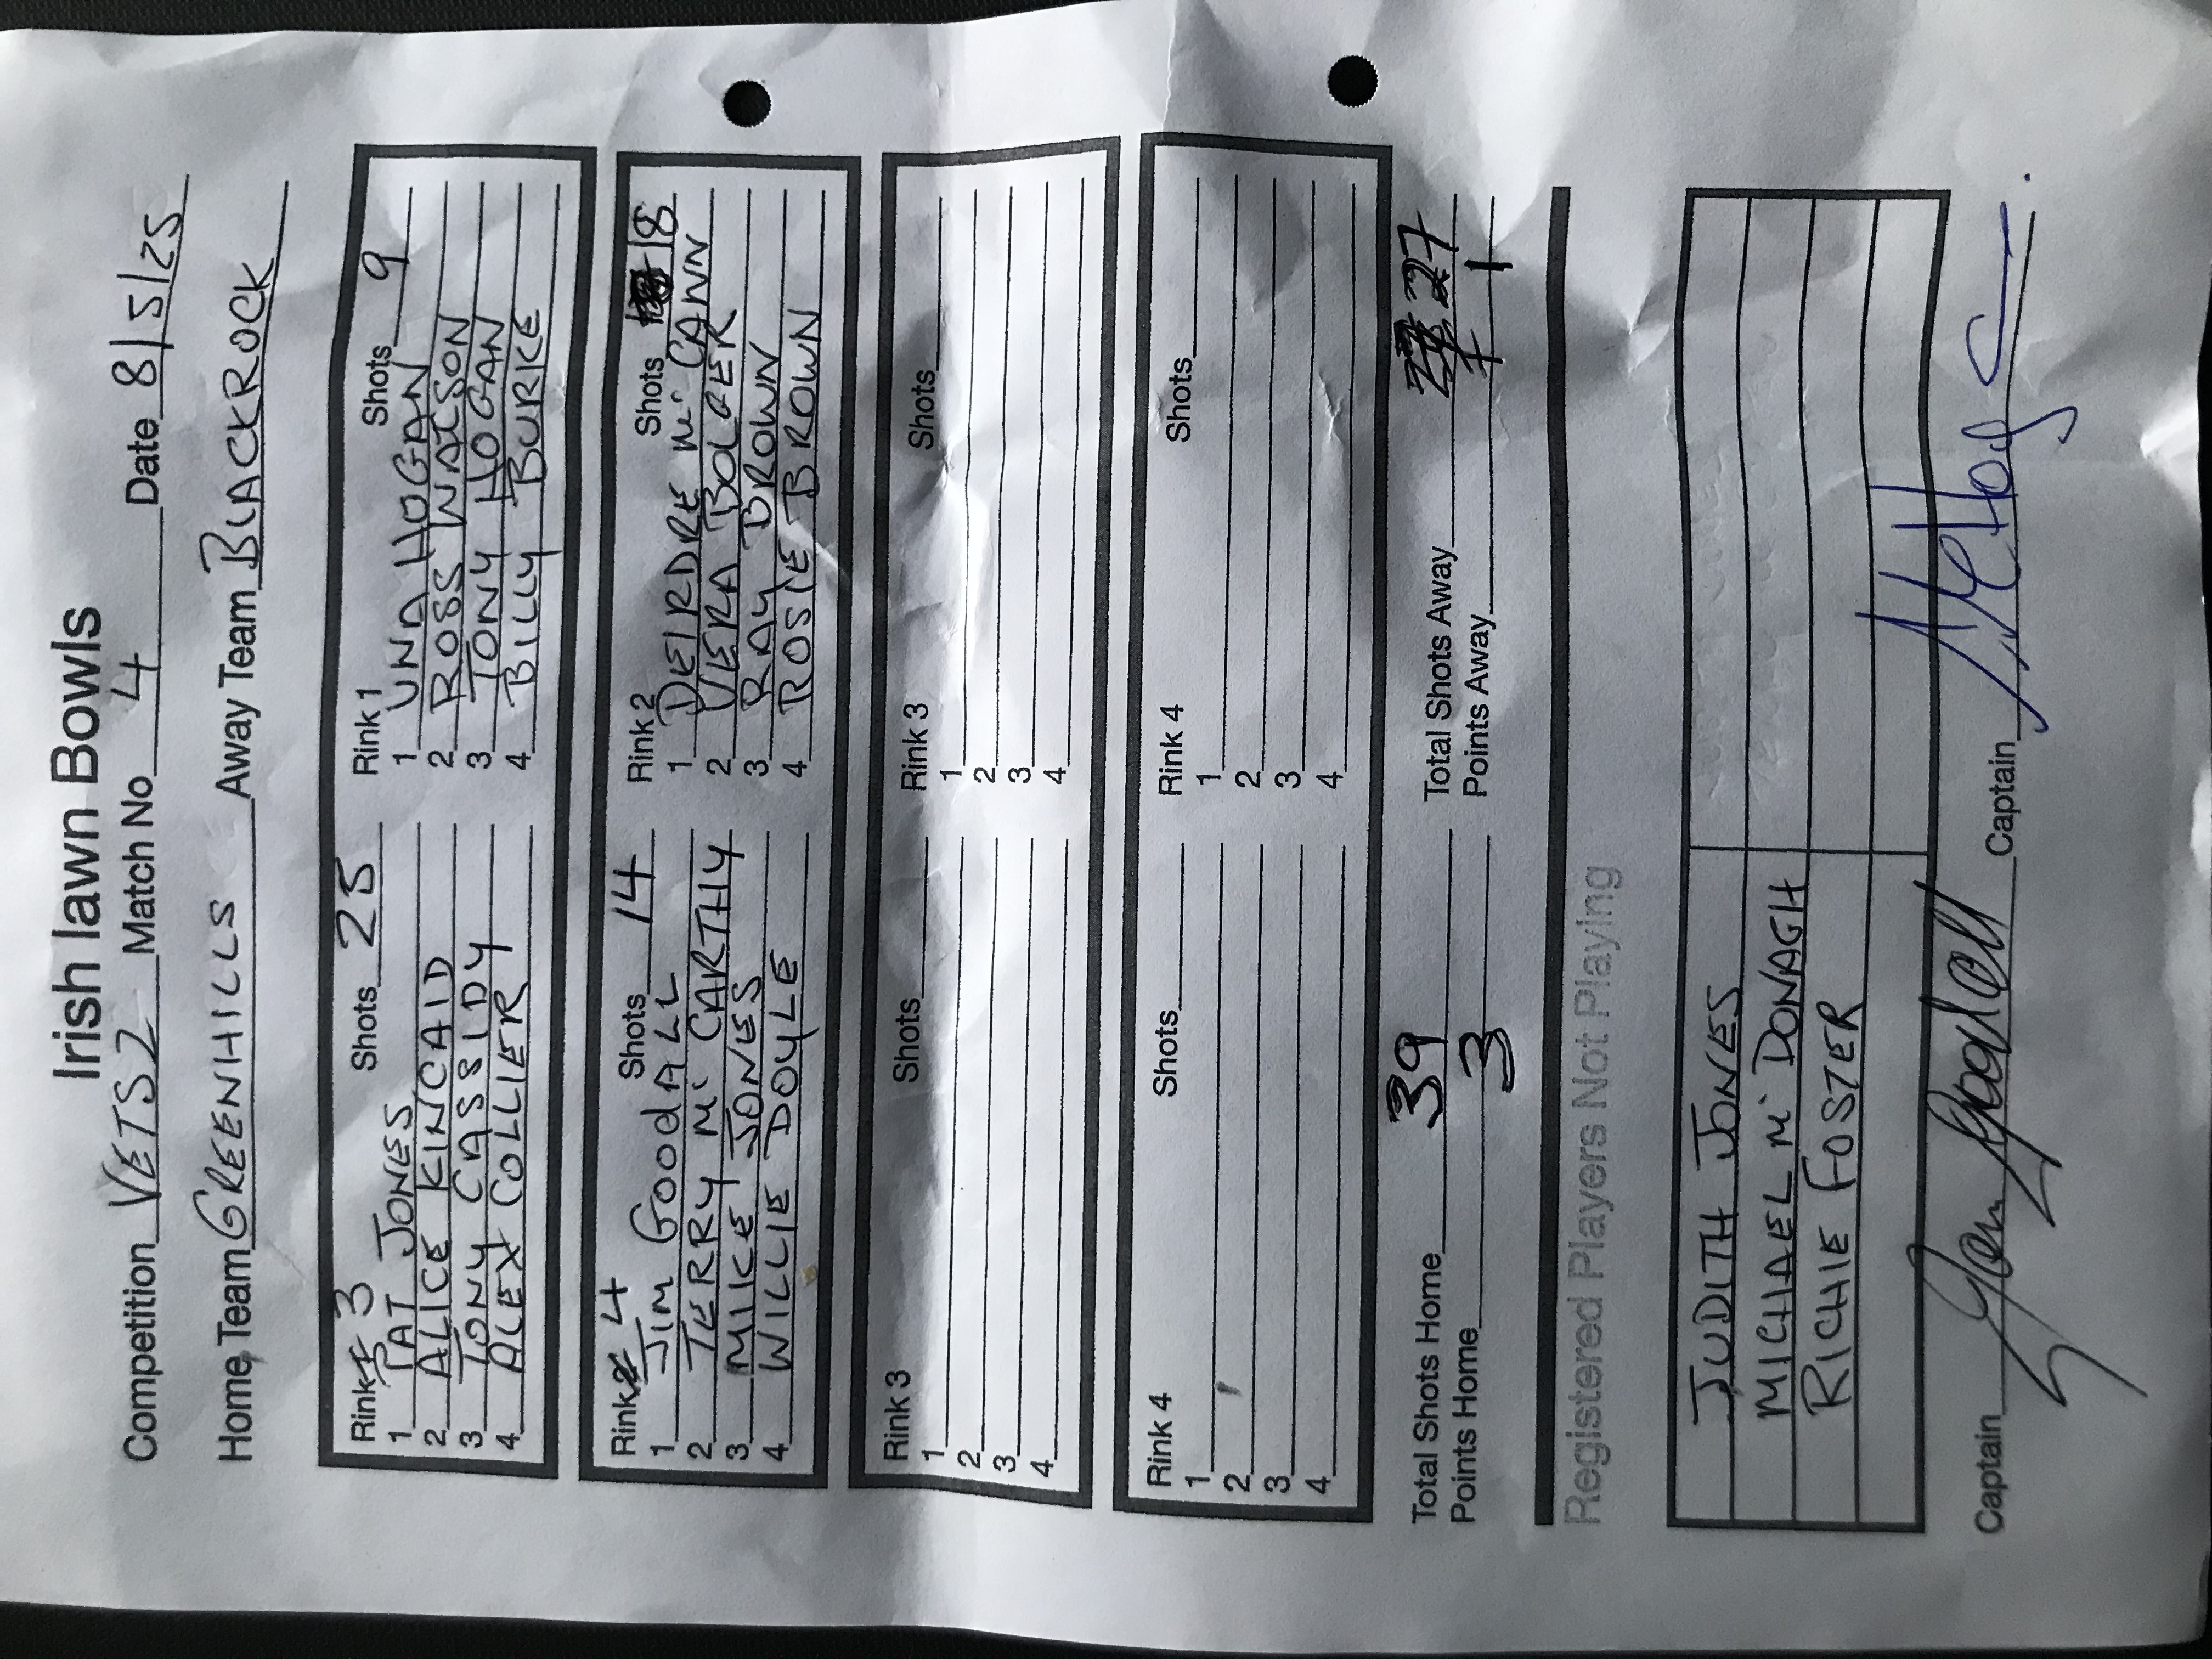 Irish lawn Bowls
Competition VETS2 Match No 4 Date 8/5/25
Home Team GREENHILLS Away Team BLACKROCK
Rink 3 Shots 25 Rink 1 Shots 9
1 PAT JONES 1 UNA HOGAN
2 ALICE KINCAID 2 ROSS WATSON
3 TONY CASSIDY 3 TONY HOGAN
4 ALEX COLLIER 4 BILLY BURKE
Rink 4 Shots 14 Rink 2 Shots 18
1 JIM GOODALL 1 DEIRDRE Mc CANN
2 TERRY Mc CARTHY 2 VERA BOLGER
3 MIKE JONES 3 RAY BROWN
4 WILLIE DOYLE 4 ROSIE BROWN
Rink 3 Shots Rink 3 Shots
1 1
2 2
3 3
4 4
Rink 4 Shots Rink 4 Shots
1 1
2 2
3 3
4 4
Total Shots Home 39 Total Shots Away 27
Points Home 3 Points Away 1
Registered Players Not Playing
JUDITH JONES
MICHAEL Mc DONAGH
RICHIE FOSTER
Captain Captain